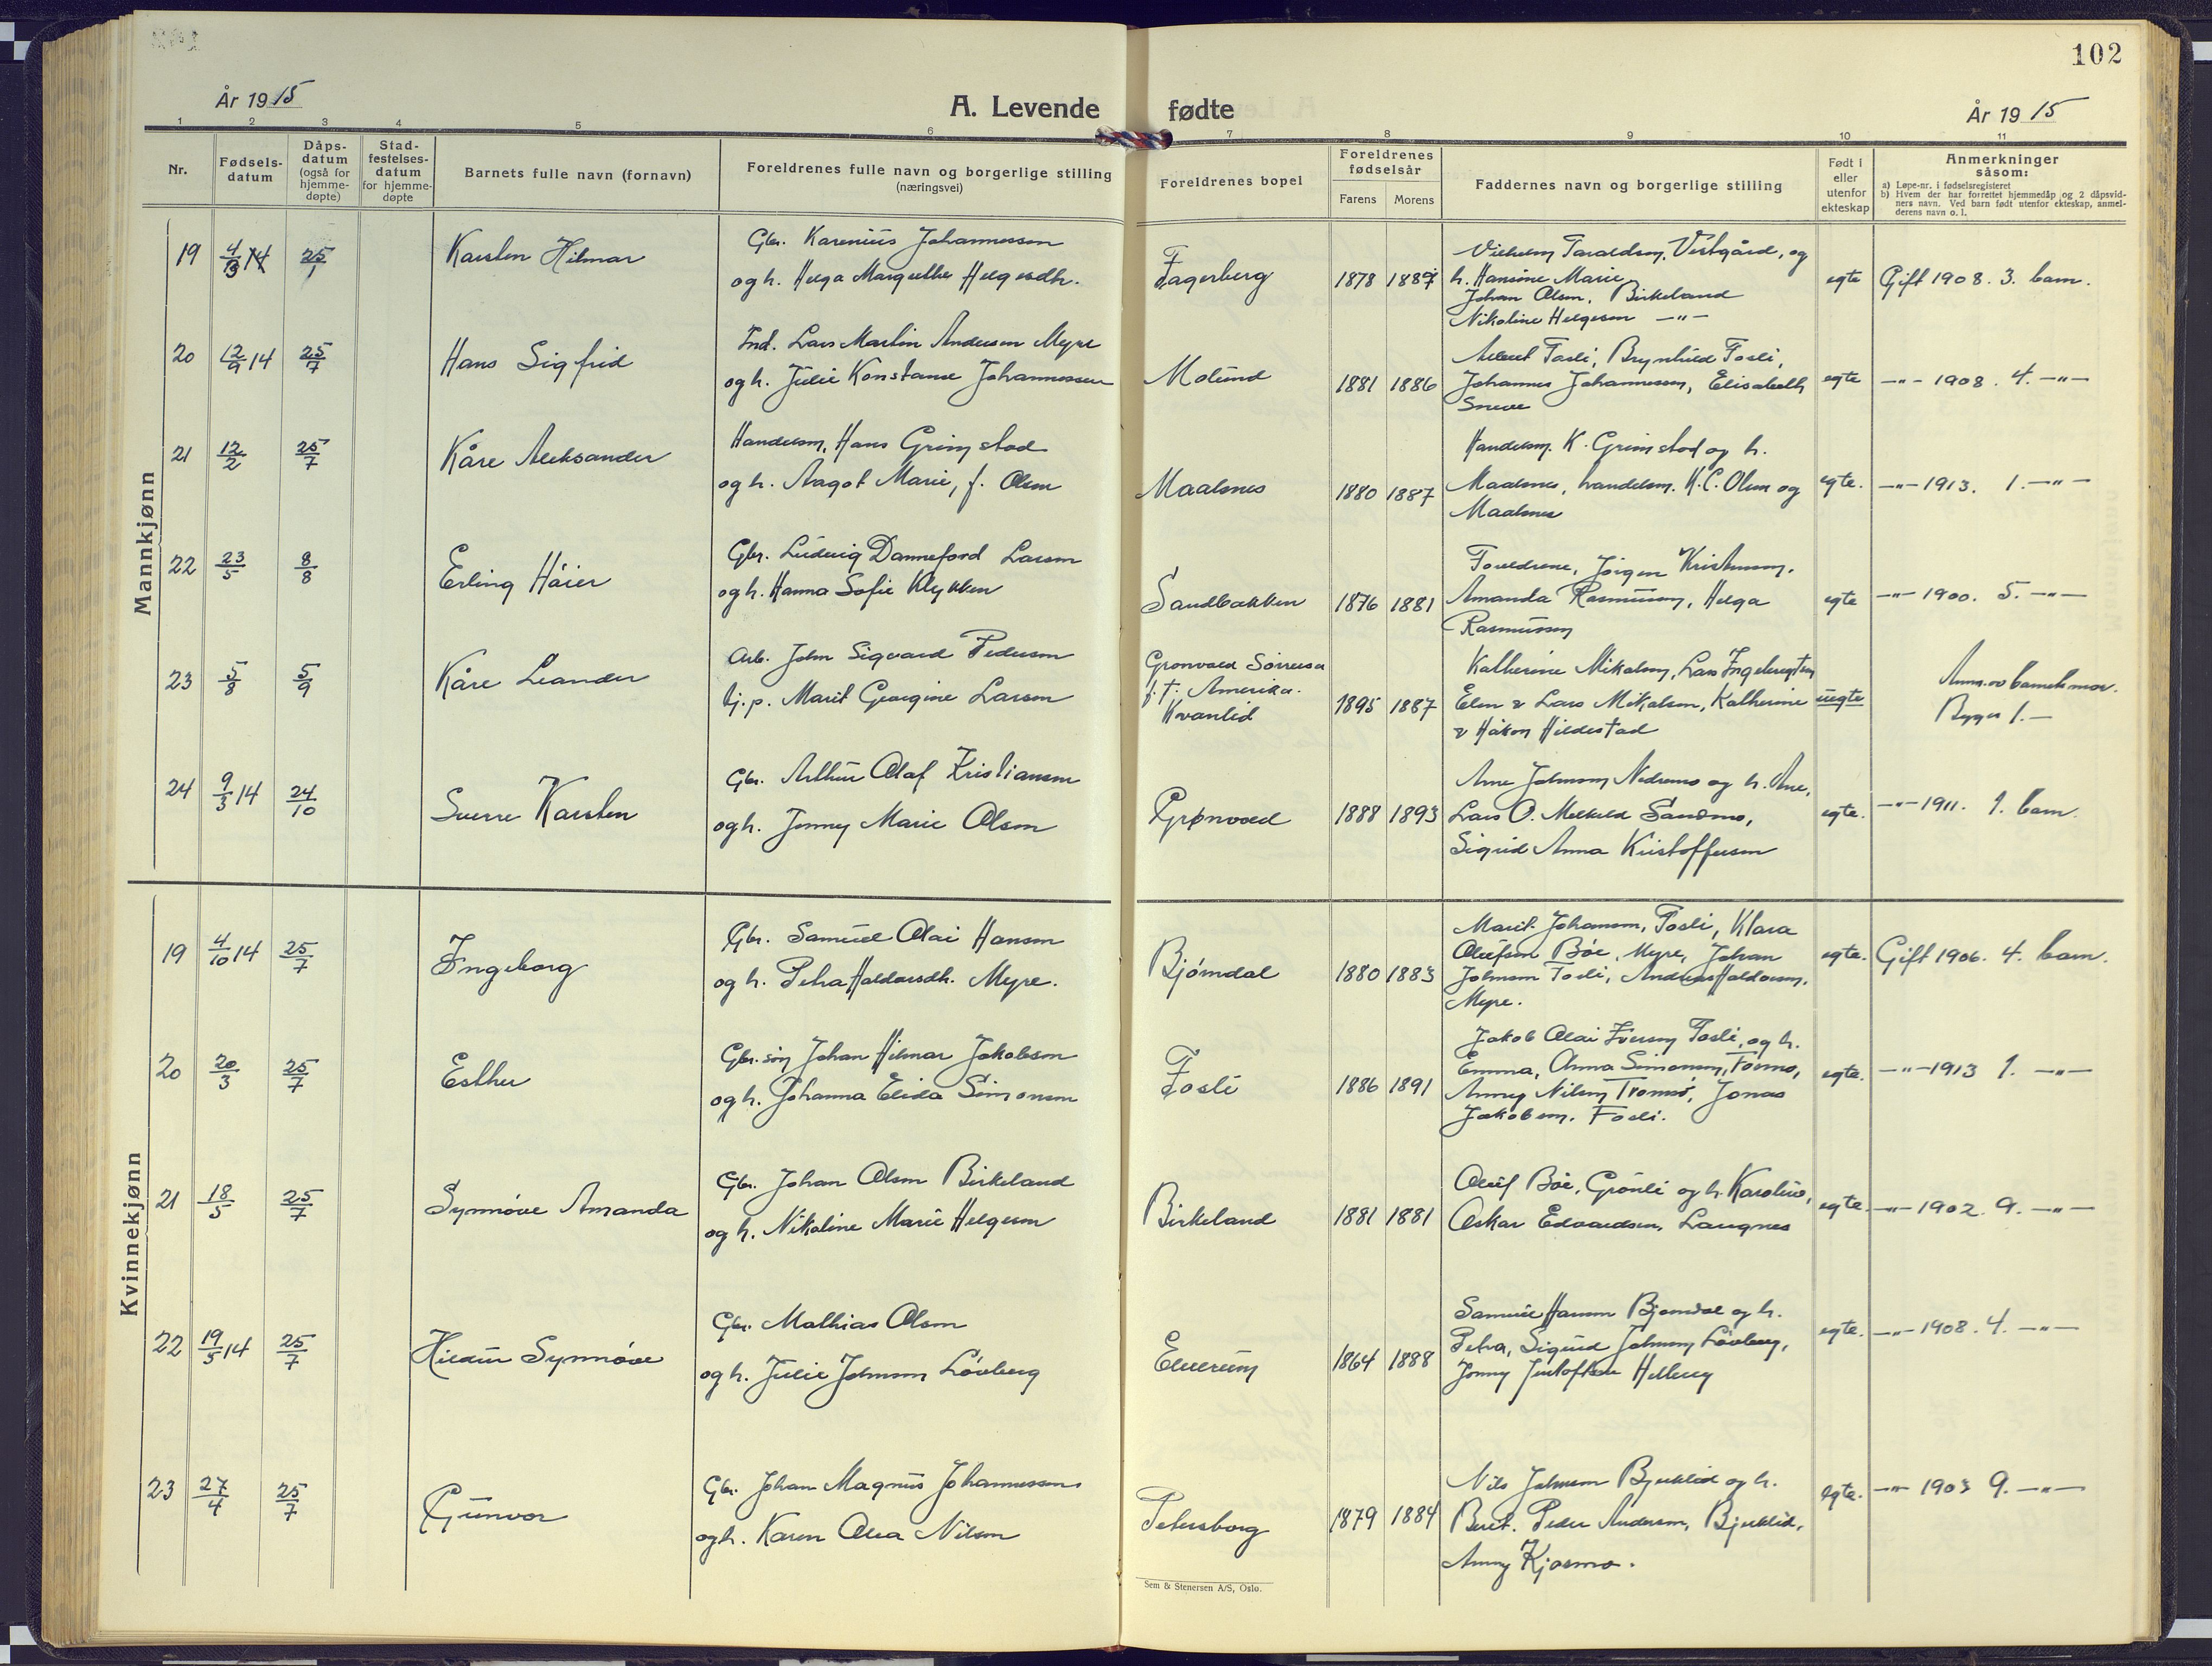 102
År 1915
A. Levende fødte
År 1915
1 2 3 4 5 6 7 8 9 10 11
Nr.
Fødsels-
datum
Dåps-
datum
(også for
hjemme-
døpte)
Stad-
festelses-
datum
for hjemme-
døpte
Barnets fulle navn (fornavn)
Foreldrenes fulle navn og borgerlige stilling
(næringsvei)
Foreldrenes bopel
Foreldrenes
fødselsår
Farens Morens
Faddernes navn og borgerlige stilling
Født i
eller
utenfor
ekteskap
Anmerkninger
såsom:
a) Løpe-nr. i fødselsregisteret
b) Hvem der har forrettet hjemmedåp og 2 dåpsvid-
ners navn. Ved barn født utenfor ekteskap, anmel-
derens navn o. l.
Mannkjønn
19 25/1 Karsten Hilmar
Gbr. Karenius Johannessen
og h. Helga Margrethe Helgesdtr.
Fagerberg 1878
Vilhelm Taraldsen, Vestgård, og
h. Hansine Marie
Johan Olsen, Birkeland
Nikoline Helgesen —"—
egte Gift 1908. 3. barn.
20 12/9 14 25/7 Hans Sigfrid
Ind. Lars Martin Andersen Myre
og h. Julie Konstanse Johannessen
Molund 1881 1886
Fosli, Brynhild Fosli,
Johannes Johannessen, Elisabeth
egte —"— 1908. 4. —"—
21 12/2 25/7 Kåre Aleksander
Handelsm. Hans Grimstad
og h. Aagot Marie, f. Olsen
Maalsnes 1880 1887
Handelsm. K. Grimstad og h.
Maalsnes, handelsm. K.C. Olsen og
Maalsnes
egte. —"— 1913. 1. —"—
22 23/5 8/8 Erling Håier
Gbr. Ludvig Danneford Larsen
og h. Hanna Sofie Klykken
Sandbakken 1876 1881
Foreldrene, Jørgen Kristensen,
Amanda Rasmussen, Helga
Rasmussen
egte —"— 1900. 5. —"—
23 5/8 5/9 Kåre Leander
Arb. John Sigvard Pedersen
tj.p. Marit Georgine Larsen
Grønvold Sørreisa
f.t. Amerika.
Kvanlid
1895 1887
Katherine Mikalsen, Lars Ingebrigtsen
Elen & Lars Mikalsen, Katherine
& Håkon Hildestad
uegte
Anm. av barnets mor.
1. —
24 9/3 14 24/10 Sverre Karsten
Gbr. Arthur Olaf Kristiansen
og h. Jenny Marie Olsen
Grønvold 1888 1893
Arne Johnsen Nedremo og h. Ane,
Lars O. Sandmo,
Sigrid Anna Kristoffersen
egte. —"— 1911. 1. barn.
Kvinnekjønn
19 4/10 14 25/7 Ingeborg
Gbr. Samuel Olai Hansen
og h. Petra Haldorsdtr. Myre.
Bjørndal 1880 1883
Marit Johansen, Fosli, Klara
Olufsen Bøe, Myre, Johan
Johnsen Fosli, Andreas Haldorsen,
Myre.
egte. Gift 1906. 4. barn.
20 20/3 25/7 Esther
Gbr. søn Johan Hilmar Jakobsen
og h. Johanna Elida Simonsen
Fosli 1886 1891
Jakob Olai Iversen Fosli, og h.
Emma, Anna Simonsen, Fosmo,
Anny Nilsen Tromsø, Jonas
Jakobsen, Fosli.
egte. —"— 1913 1. —"—
21 18/5 25/7 Synnøve Amanda
Gbr. Johan Olsen Birkeland
og h. Nikoline Marie Helgesen
Birkeland 1881 1881
Oluf Bøe, Grønli og h. Karoline,
Oskar Edvardsen, Laugnes
egte. —"— 1902. 9. —"—
22 19/5 14 25/7 Hildur Synnøve
Gbr. Mathias Olsen
og h. Julie Johnsen Løvberg
Elverum 1864 1888
Samuel Hansen Bjørndal og h.
Petra, Sigurd Johnsen Løvberg,
Jenny
egte. —"— 1908. 4. —"—
23 27/4 25/7 Gunvor
Gbr. Johan Magnus Johannessen
og h. Karen Olea Nilsen
Petersborg 1879 1884
Nils Johnsen Bjerklid og h.
Beret. Peder Andersen, Bjerklid,
Anny Kjosmo.
egte. —"— 1903 9. —"—
Sem & Stenersen A/S, Oslo.